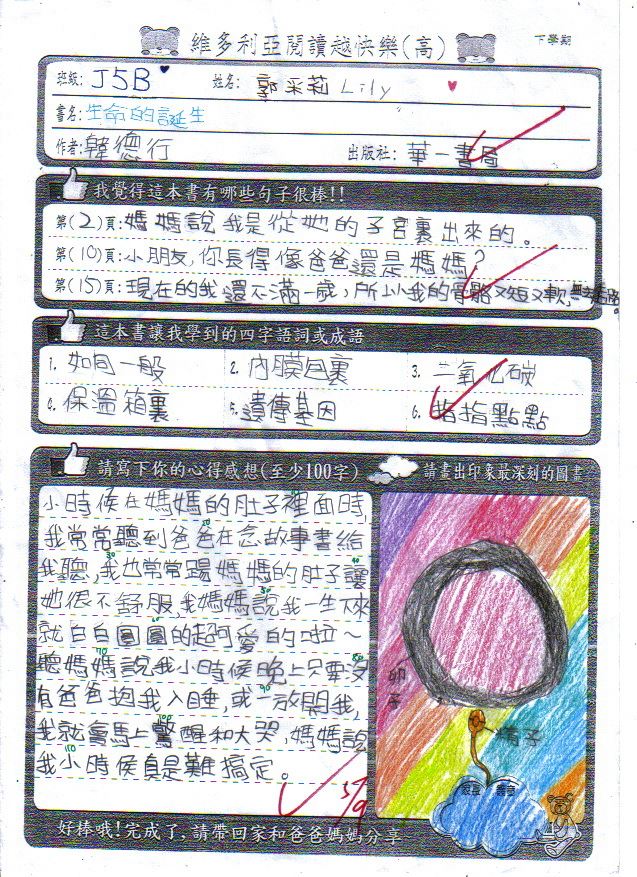 維多利亞閱讀越快樂(高)
下學期
班級: J5B 姓名: 郭采莉 Lily
書名: 生命的誕生
作者: 韓德行 出版社: 華一書局
我覺得這本書有哪些句子很棒!!
第(2)頁: 媽媽說我是從她的子宮裏出來的。
第(10)頁: 小朋友,你長得像爸爸還是媽媽?
第(15)頁: 現在的我還不滿一歲,所以我的骨骼又短又軟,
這本書讓我學到的四字語詞或成語
1. 如同一般 2. 內膜包裏 3. 二氧化碳
4. 保溫箱裏 5. 遺傳基因 6. 指指點點
請寫下你的心得感想(至少100字)
請畫出印象最深刻的圖畫
小時候在媽媽的肚子裡面時,
我常常聽到爸爸在念故事書給
我聽,我也常常踢媽媽的肚子讓
她很不舒服,我媽媽說我一生下來
就白白圓圓的超可愛的啦～
聽媽媽說我小時候晚上只要沒
有爸爸抱我入睡,或一放開我,
我就會馬上驚醒和大哭,媽媽說
我小時候真是難搞定。
卵子
精子
5/9
好棒哦!完成了,請帶回家和爸爸媽媽分享